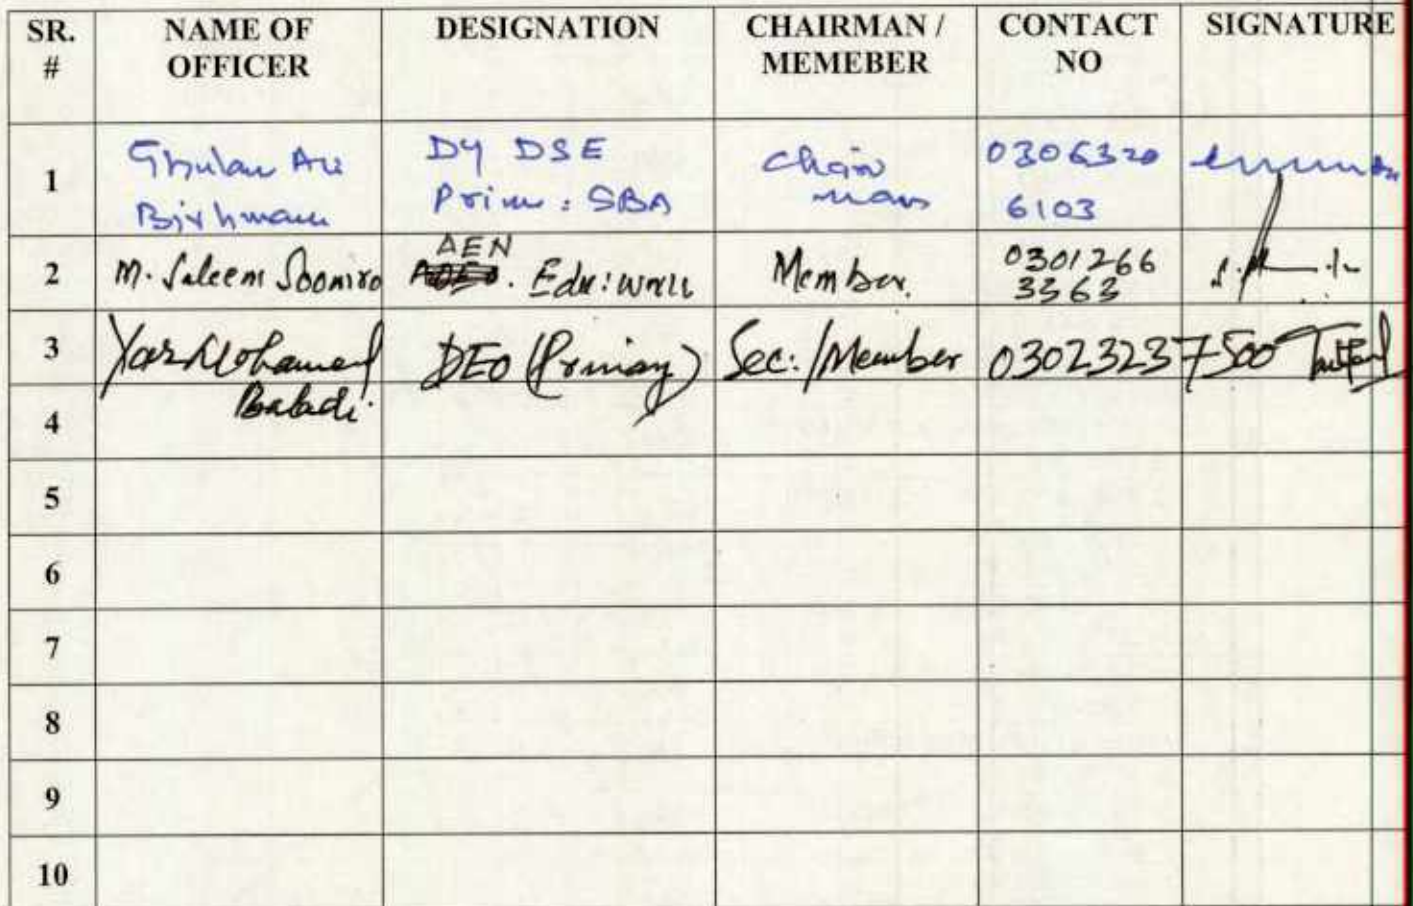 SR. # NAME OF OFFICER DESIGNATION CHAIRMAN / MEMEBER CONTACT NO SIGNATURE
1 Ghulam Ali Birhmani DY DSE Prim: SBA Chairman 0306320 6103
2 M. Saleem Soomro AEN . Edu: works Member. 0301266 3363
3 Yar Mohamad Baladi. DEO (Primary) Sec:/Member 03023237500
4
5
6
7
8
9
10